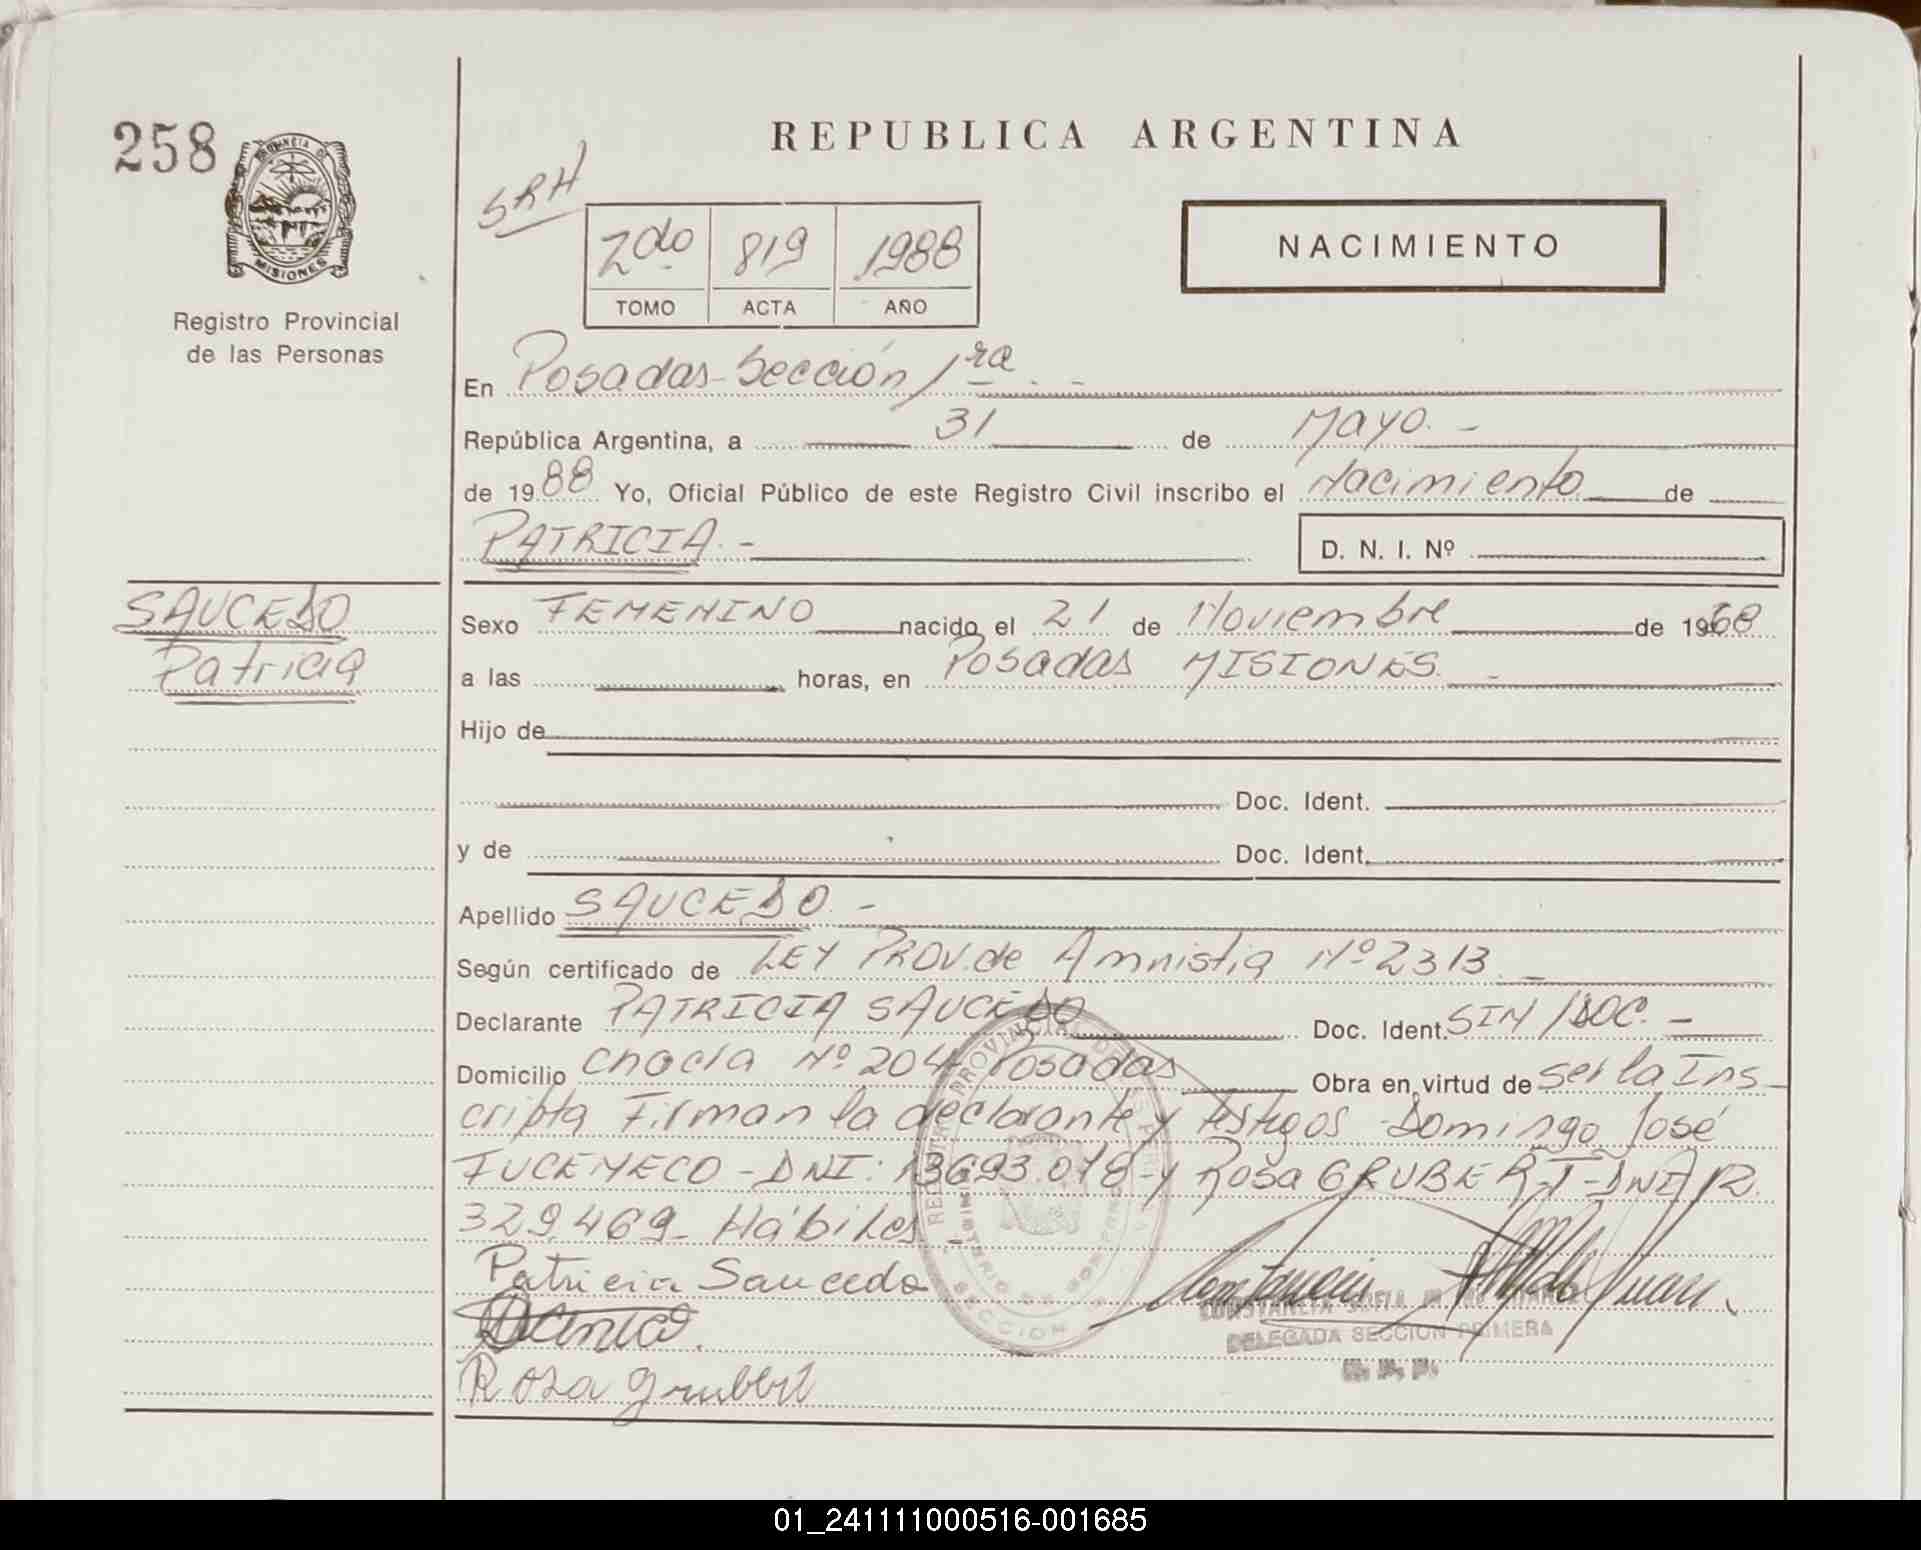 258
PROVINCIA DE
MISIONES
Registro Provincial
de las Personas
REPUBLICA ARGENTINA
SRH
2do 819 1988
TOMO ACTA AÑO
NACIMIENTO
En Posadas-Sección 1ra
República Argentina, a 31 de Mayo. -
de 1988 Yo, Oficial Público de este Registro Civil inscribo el Nacimiento de
PATRICIA. - D. N. I. Nº
SAUCEDO
Patricia
Sexo FEMENINO nacido el 21 de Noviembre de 1968
a las horas, en Posadas MISIONES. -
Hijo de
Doc. Ident.
y de Doc. Ident.
Apellido SAUCEDO. -
Según certificado de LEY PROV. de Amnistia Nº 2313. -
Declarante PATRICIA SAUCEDO Doc. Ident. SIN/DOC. -
Domicilio Nº 204 Posadas Obra en virtud de ser la Ins-
cripta Firman la declarante y testigos Domingo José
DNI: 13693.078-y Rosa GRUBER-T-DNI 12.
329.469- Hábiles. -
Patricia Saucedo
Rosa Grubert
DELEGADA SECCION PRIMERA
R. P. P.
SECCION
01_241111000516-001685